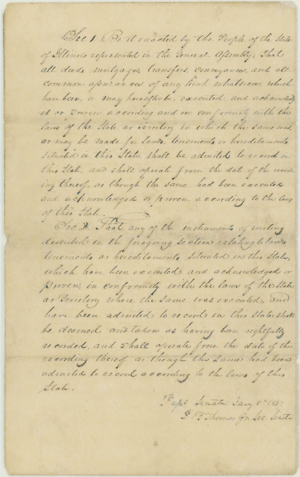 Sec 1. Be it enacted by the People of the State
of Illinois represented in the General Assembly, That
all deeds mortgages transfers conveyances, and all
common assurances of any kind whatever which
have been or may hereafter be executed, and acknowledged
or proven according and in conformity with the
laws of the State or Territory in which the same was
or may be made for lands, tenements or hereditaments
situated in this State shall be admitted to record in
this State, and shall operate from the date of the
thereof, as though the same had been executed
and acknowledged or proven according to the laws
of this State.
Sec 2. That any of the instruments of writing
described in the foregoing section relating to lands
tenements or hereditaments situated in this State,
which have been executed and acknowledged or
proven in conformity with the laws of the State
or Territory where the same was executed, and
have been admitted to record in this State shall
be deemed and taken as having been rightfully
recorded, and shall operate from the date of the
recording thereof as though the same had been
admitted to record according to the laws of this
State.
Senate